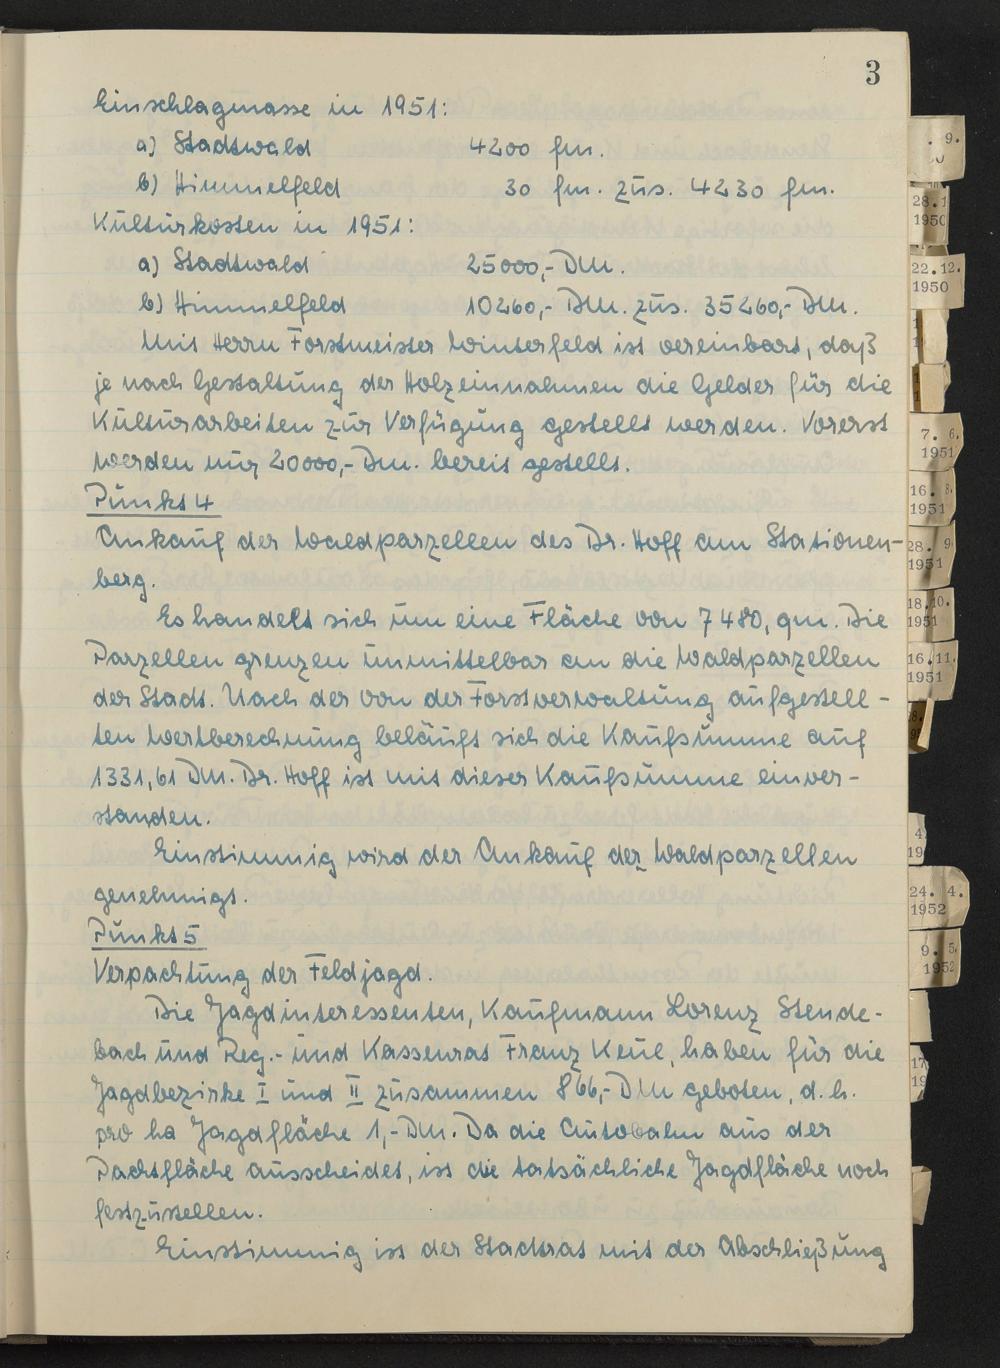 3
Einschlagmasse in 1951:
a) Stadtwald 4200 fm.
b) Himmelfeld 30 fm. zus. 4230 fm.
Kulturkosten in 1951:
a) Stadtwald 25000,- DM.
b) Himmelfeld 10260,- DM. zus. 35260,- DM.
Mit Herrn Forstmeister Winterfeld ist vereinbart, daß
je nach Gestaltung der Holzeinnahmen die Gelder für die
Kulturarbeiten zur Verfügung gestellt werden. Vorerst
werden nur 20000,- DM. bereit gestellt.
Punkt 4
Ankauf der Waldparzellen des Dr. Hoff am Stationen-
berg.
Es handelt sich um eine Fläche von 7480, qm. Die
Parzellen grenzen unmittelbar an die Waldparzellen
der Stadt. Nach der von der Forstverwaltung aufgestell-
ten Wertberechnung beläuft sich die Kaufsumme auf
1331,61 DM. Dr. Hoff ist mit dieser Kaufsumme einver-
standen.
Einstimmig wird der Ankauf der Waldparzellen
genehmigt.
Punkt 5
Verpachtung der Feldjagd.
Die Jagdinteressenten, Kaufmann Lorenz Stende-
bach und Reg.- und Kassenrat Franz Keul, haben für die
Jagdbezirke I und II zusammen 866,- DM geboten, d.h.
pro ha Jagdfläche 1,- DM. Da die Autobahn aus der
Pachtfläche ausscheidet, ist die tatsächliche Jagdfläche noch
festzustellen.
Einstimmig ist der Stadtrat mit der Abschließung
. 9.
28.1
1950
22.12.
1950
7. 6.
1951
16. 8.
1951
28. 9
1951
18.10.
1951
16.11.
1951
4
19
24. 4.
1952
9. 5.
1952
17
19